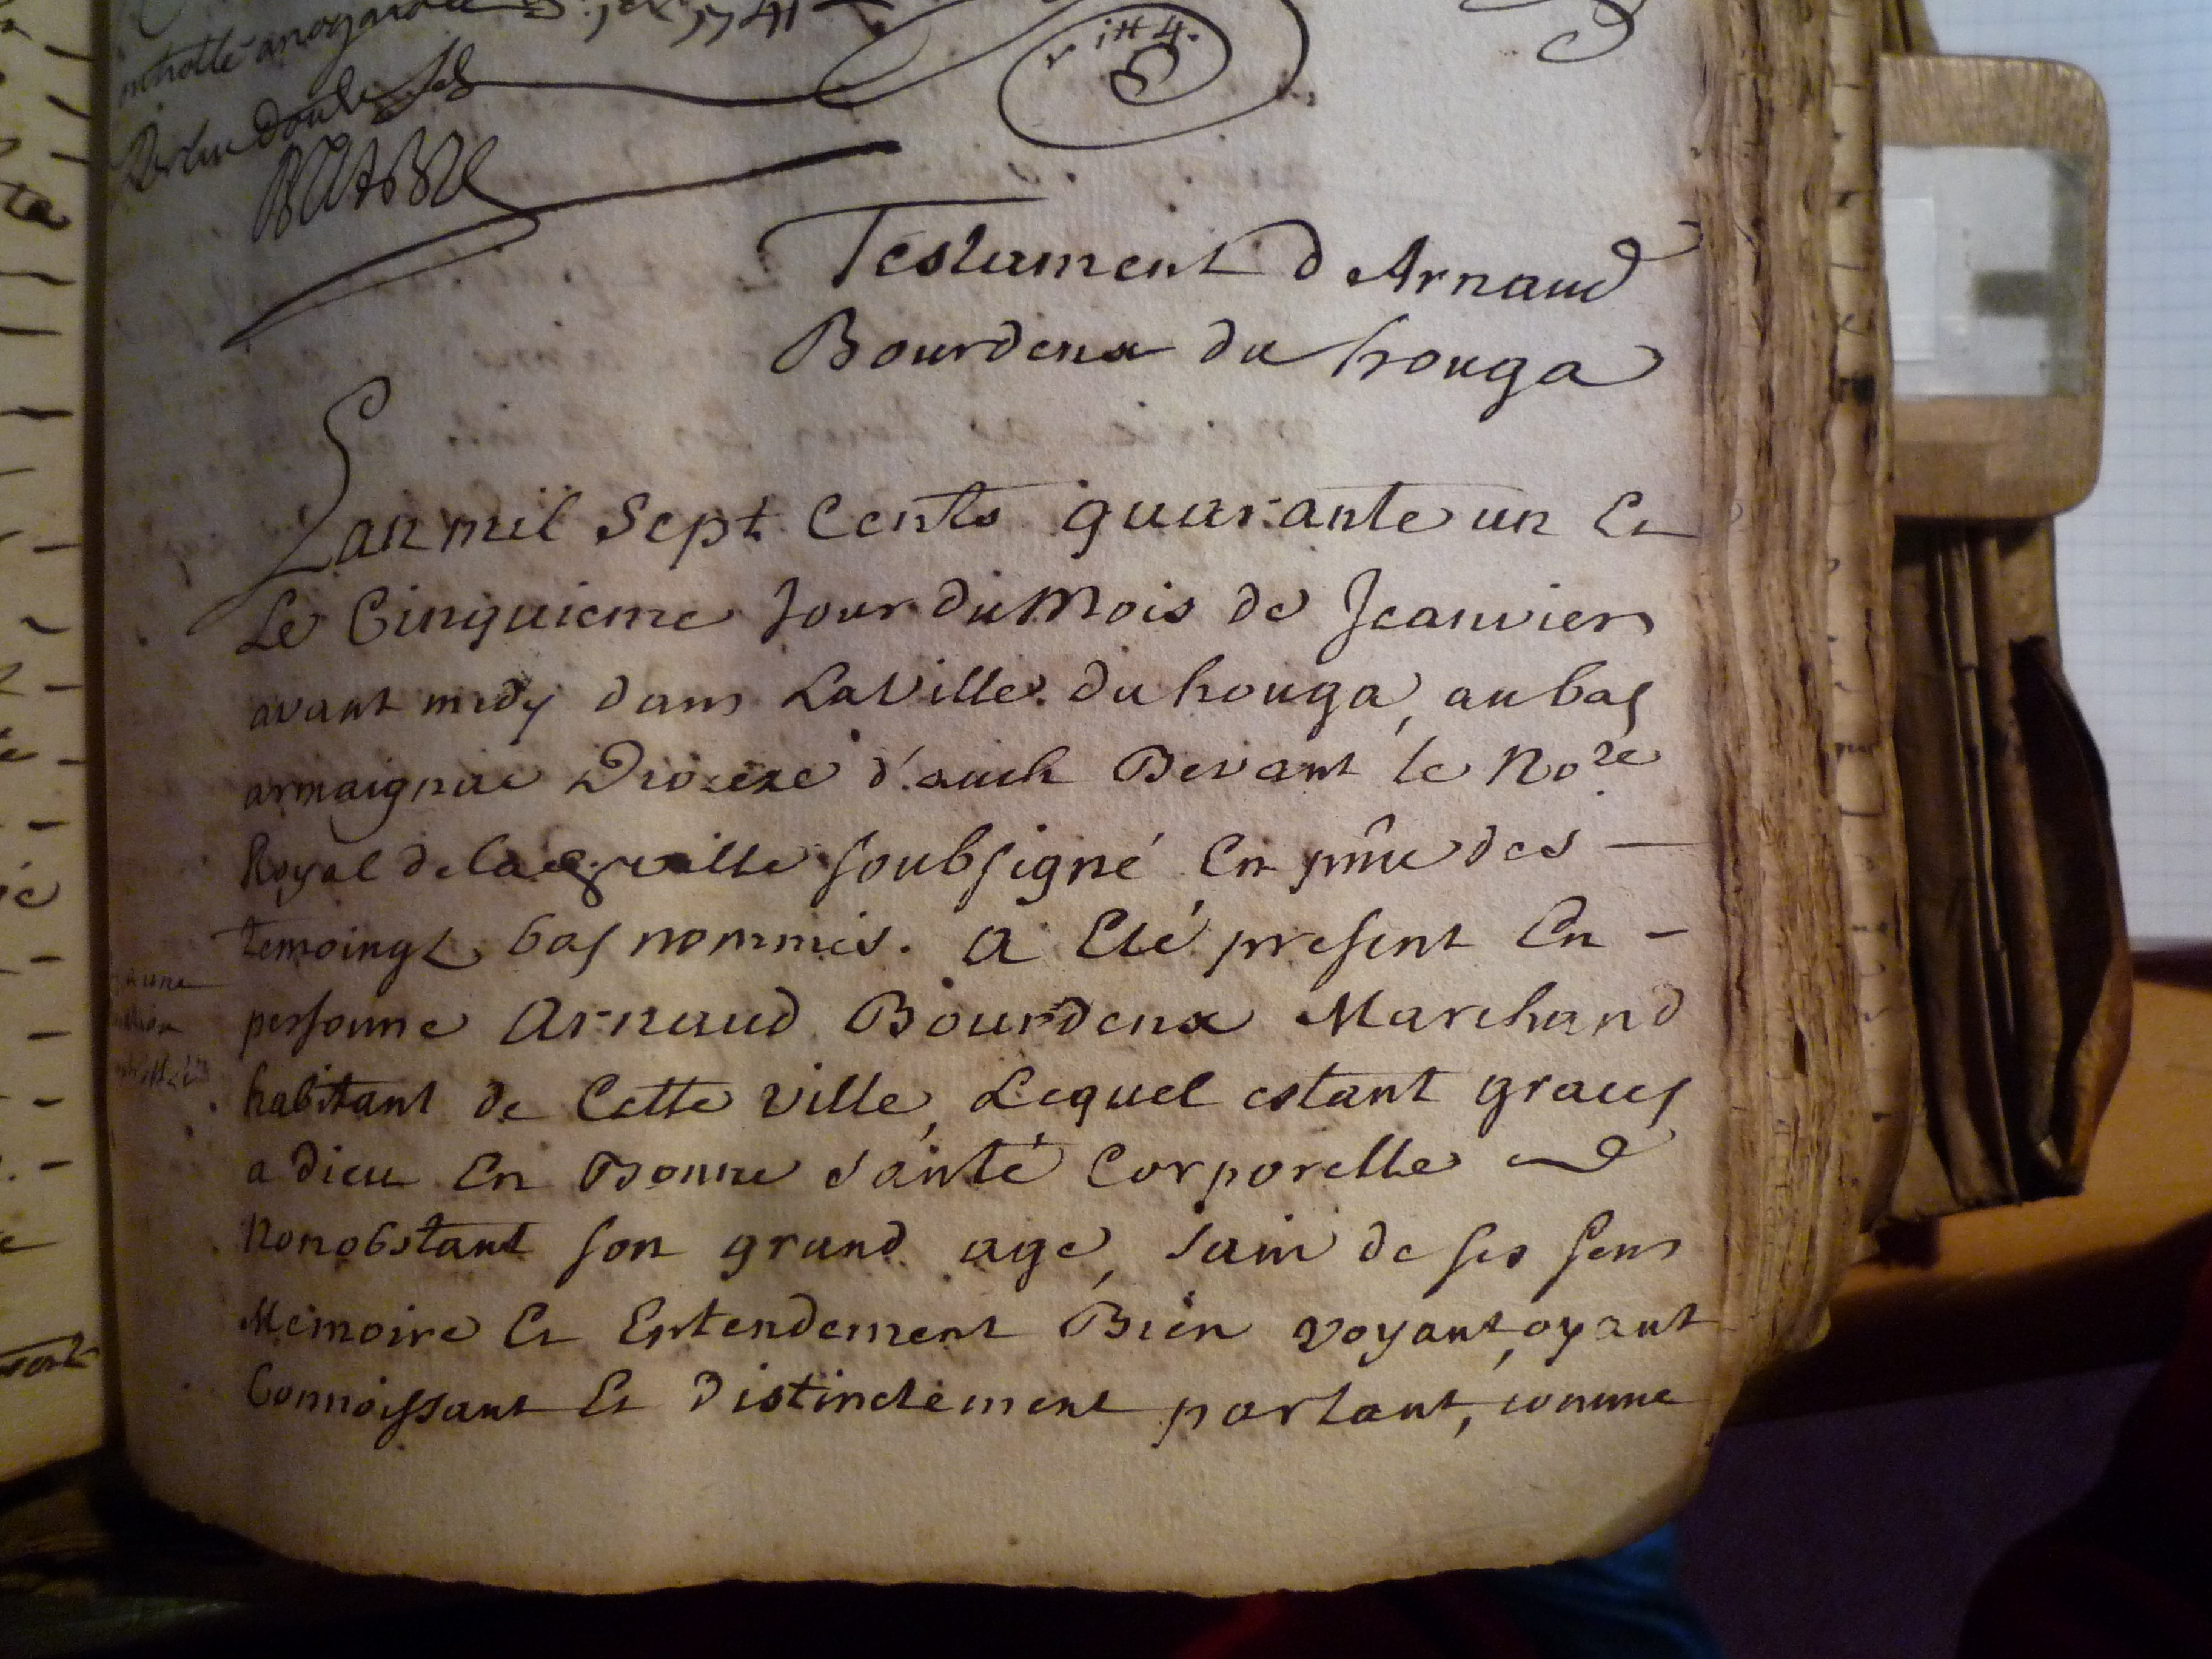 1741
Testament d Arnaud
Bourdeux du houga
Lan mil Sept Cents quarante un Et
Le Cinquieme Jour du Mois de Jeanvier
avant midy dans La Ville du houga, au bas
armaignac Diozeze d'auch Devant le No.re
Royal de la ville soubsigné En pñce des —
temoings bas nommés. a Eté present En -
personne Arnaud Bourdeux Marchand
habitant de Cette ville, Lequel estant graces
a dieu En Bonne santé Corporelle
Nonobstant son grand age, sain de ses sens
Memoire Et Entendement Bien voyant, oyant
Connoissant Et Distinctement parlant, comme